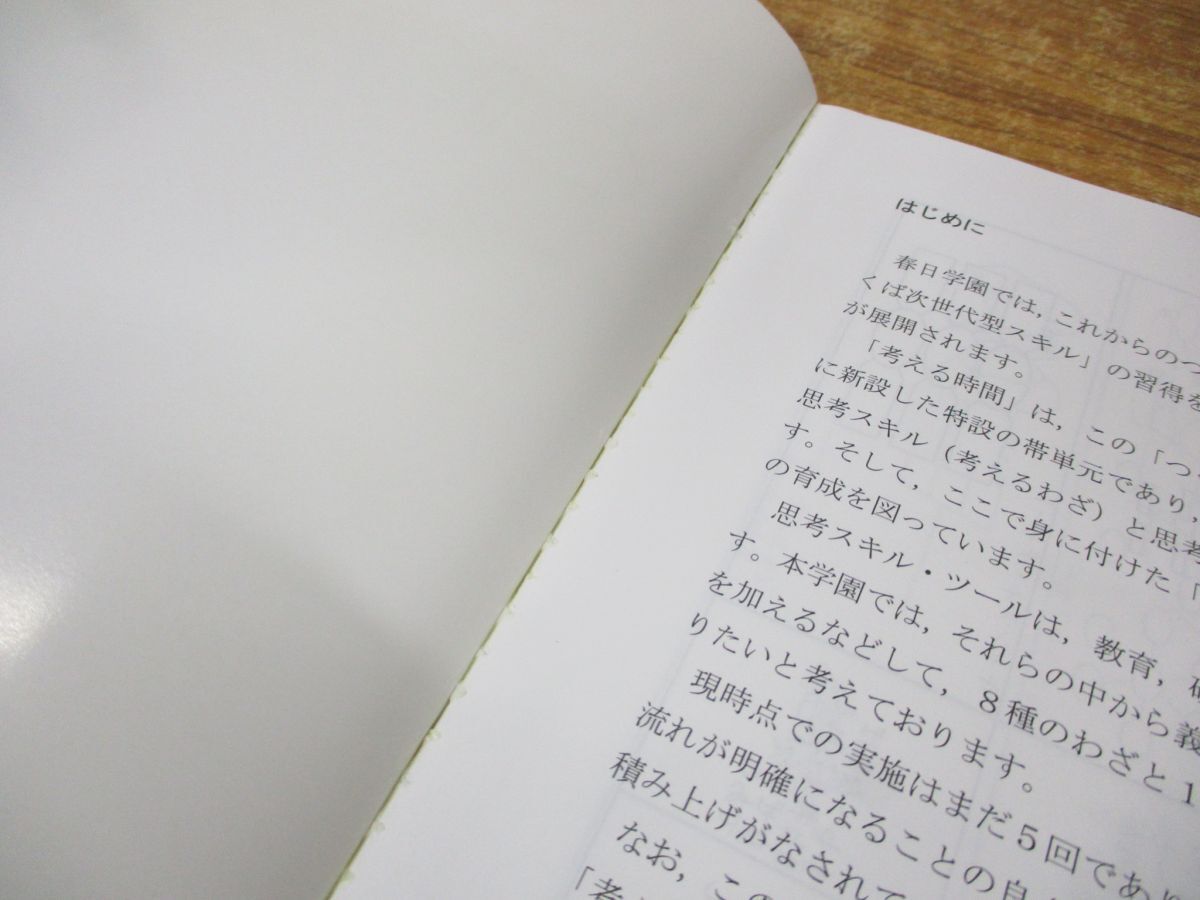 はじめに
春日学園では，これからのつ
くば次世代型スキル」の習得を
が展開されます。
「考える時間」は，この「つ
に新設した特設の帯単元であり，
思考スキル（考えるわざ）と思考
す。そして，ここで身に付けた「
の育成を図っています。
思考スキル・ツールは，教育，
す。本学園では，それらの中から義
を加えるなどして，８種のわざと１
りたいと考えております。
現時点での実施はまだ５回であり
流れが明確になることの良
積み上げがなされて
なお，この
「考